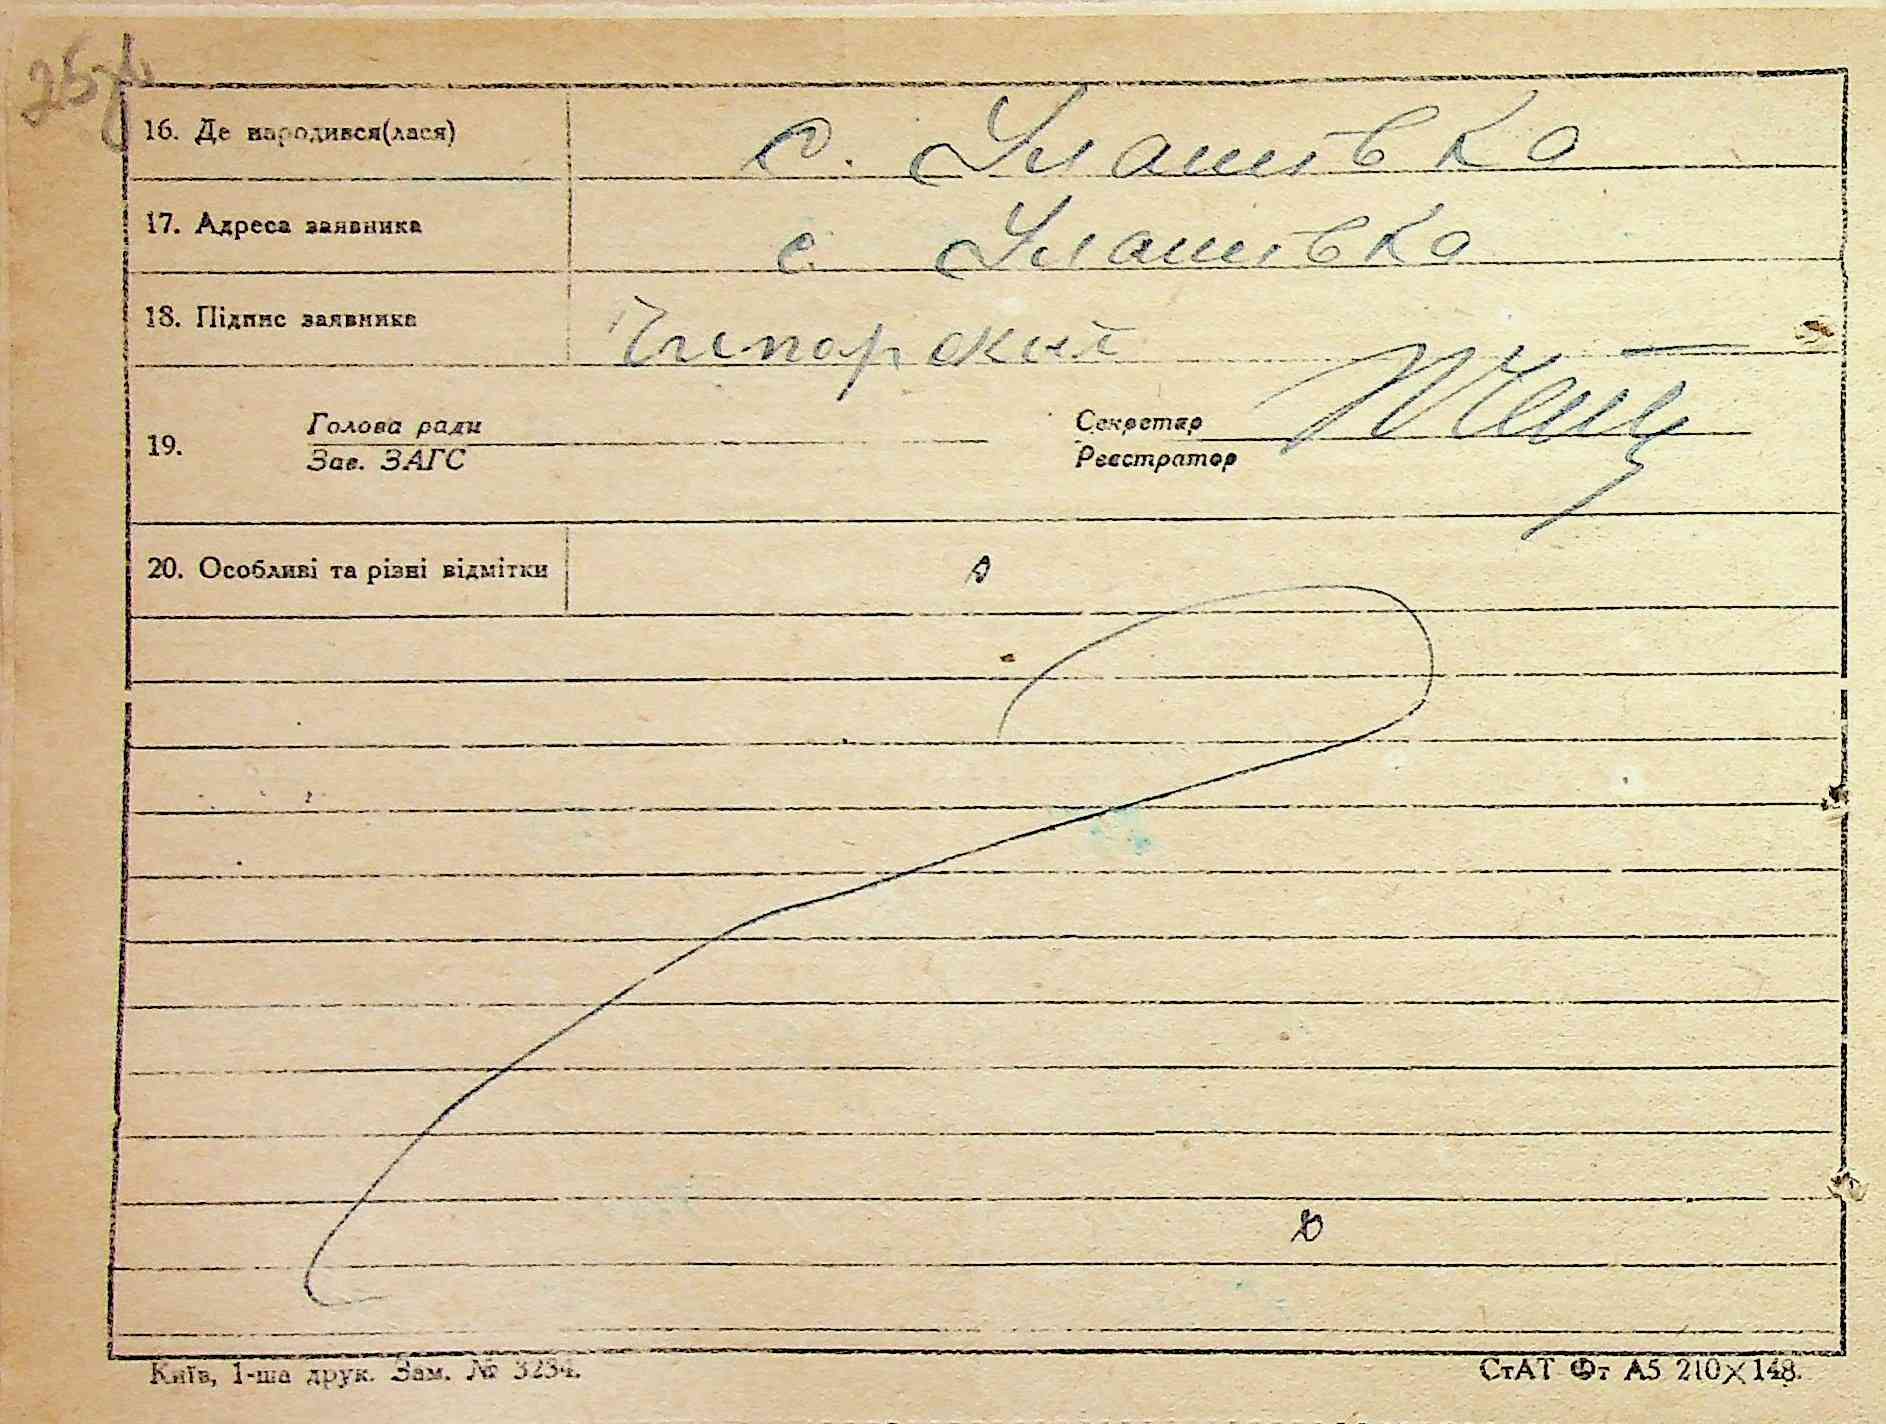 16. Де народився(лася) с. Улашівка
17. Адреса заявника с. Улашівка
18. Підпис заявника
19. Голова ради Секретар
Зав. ЗАГС Реєстратор
20. Особливі та різні відмітки
Київ, 1-ша друк. Зам. № 3234. СтАТ Фт А5 210×148.